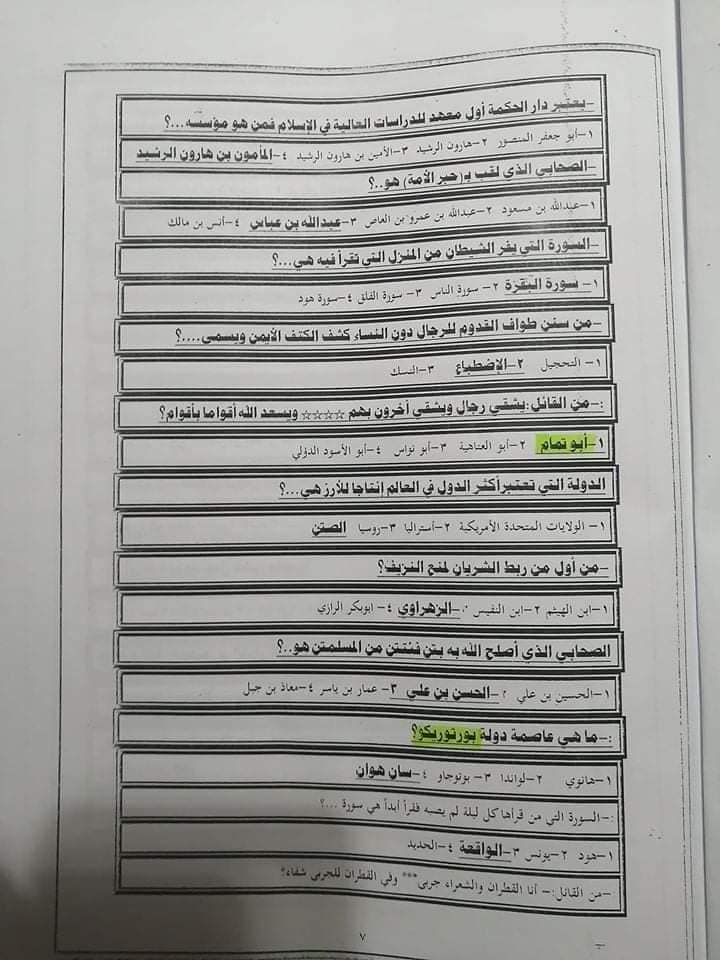 -يعتبر دار الحكمة أول معهد للدراسات العالية في الإسلام فمن هو مؤسسه...؟
١-أبو جعفر المنصور ٢-هارون الرشيد ٣-الأمين بن هارون الرشيد ٤-المأمون بن هارون الرشيد
-الصحابي الذي لقب ب(حبر الأمة) هو..؟
١-عبدالله بن مسعود ٢-عبدالله بن عمرو بن العاص ٣-عبدالله بن عباس ٤-أنس بن مالك
-السورة التي يفر الشيطان من المنزل التي تقرأ فيه هي...؟
١-سورة البقرة ٢-سورة الناس ٣-سورة الفلق ٤-سورة هود
-من سنن طواف القدوم للرجال دون النساء كشف الكتف الأيمن ويسمى....؟
١-التحجيل ٢-الإضطباع ٣-النسك
:-من القائل:يشقي رجال ويشقي أخرون بهم ☆☆☆☆ ويسعد الله أقواما بأقوام؟
١-أبو تمام ٢-أبو العتاهية ٣-أبو نواس ٤-أبو الأسود الدؤلي
الدولة التي تعتبر أكثر الدول في العالم إنتاجا للأرز هي...؟
١-الولايات المتحدة الأمريكية ٢-أستراليا ٣-روسيا الصتن
-من أول من ربط الشريان لمنع النزيف؟
١-ابن الهيثم ٢-ابن النفيس -الزهراوي ٤-ابوبكر الرازي
الصحابي الذي أصلح الله به بتن فئتتن من المسلمتن هو..؟
١-الحسين بن علي ٢-الحسن بن علي ٣-عمار بن ياسر ٤-معاذ بن جبل
:-ما هي عاصمة دولة بورتوريكو؟
١-هانوي ٢-لواندا ٣-بوتوجاو ٤-سان هوان
:-السورة التي من قرأها كل ليلة لم يصبه فقرأ أبدأ هي سورة ...؟
١-هود ٢-يونس ٣-الواقعة ٤-الحديد
-من القائل:-أنا القطران والشعراء جربى*** وفي القطران للجربى شفاء؟
٧